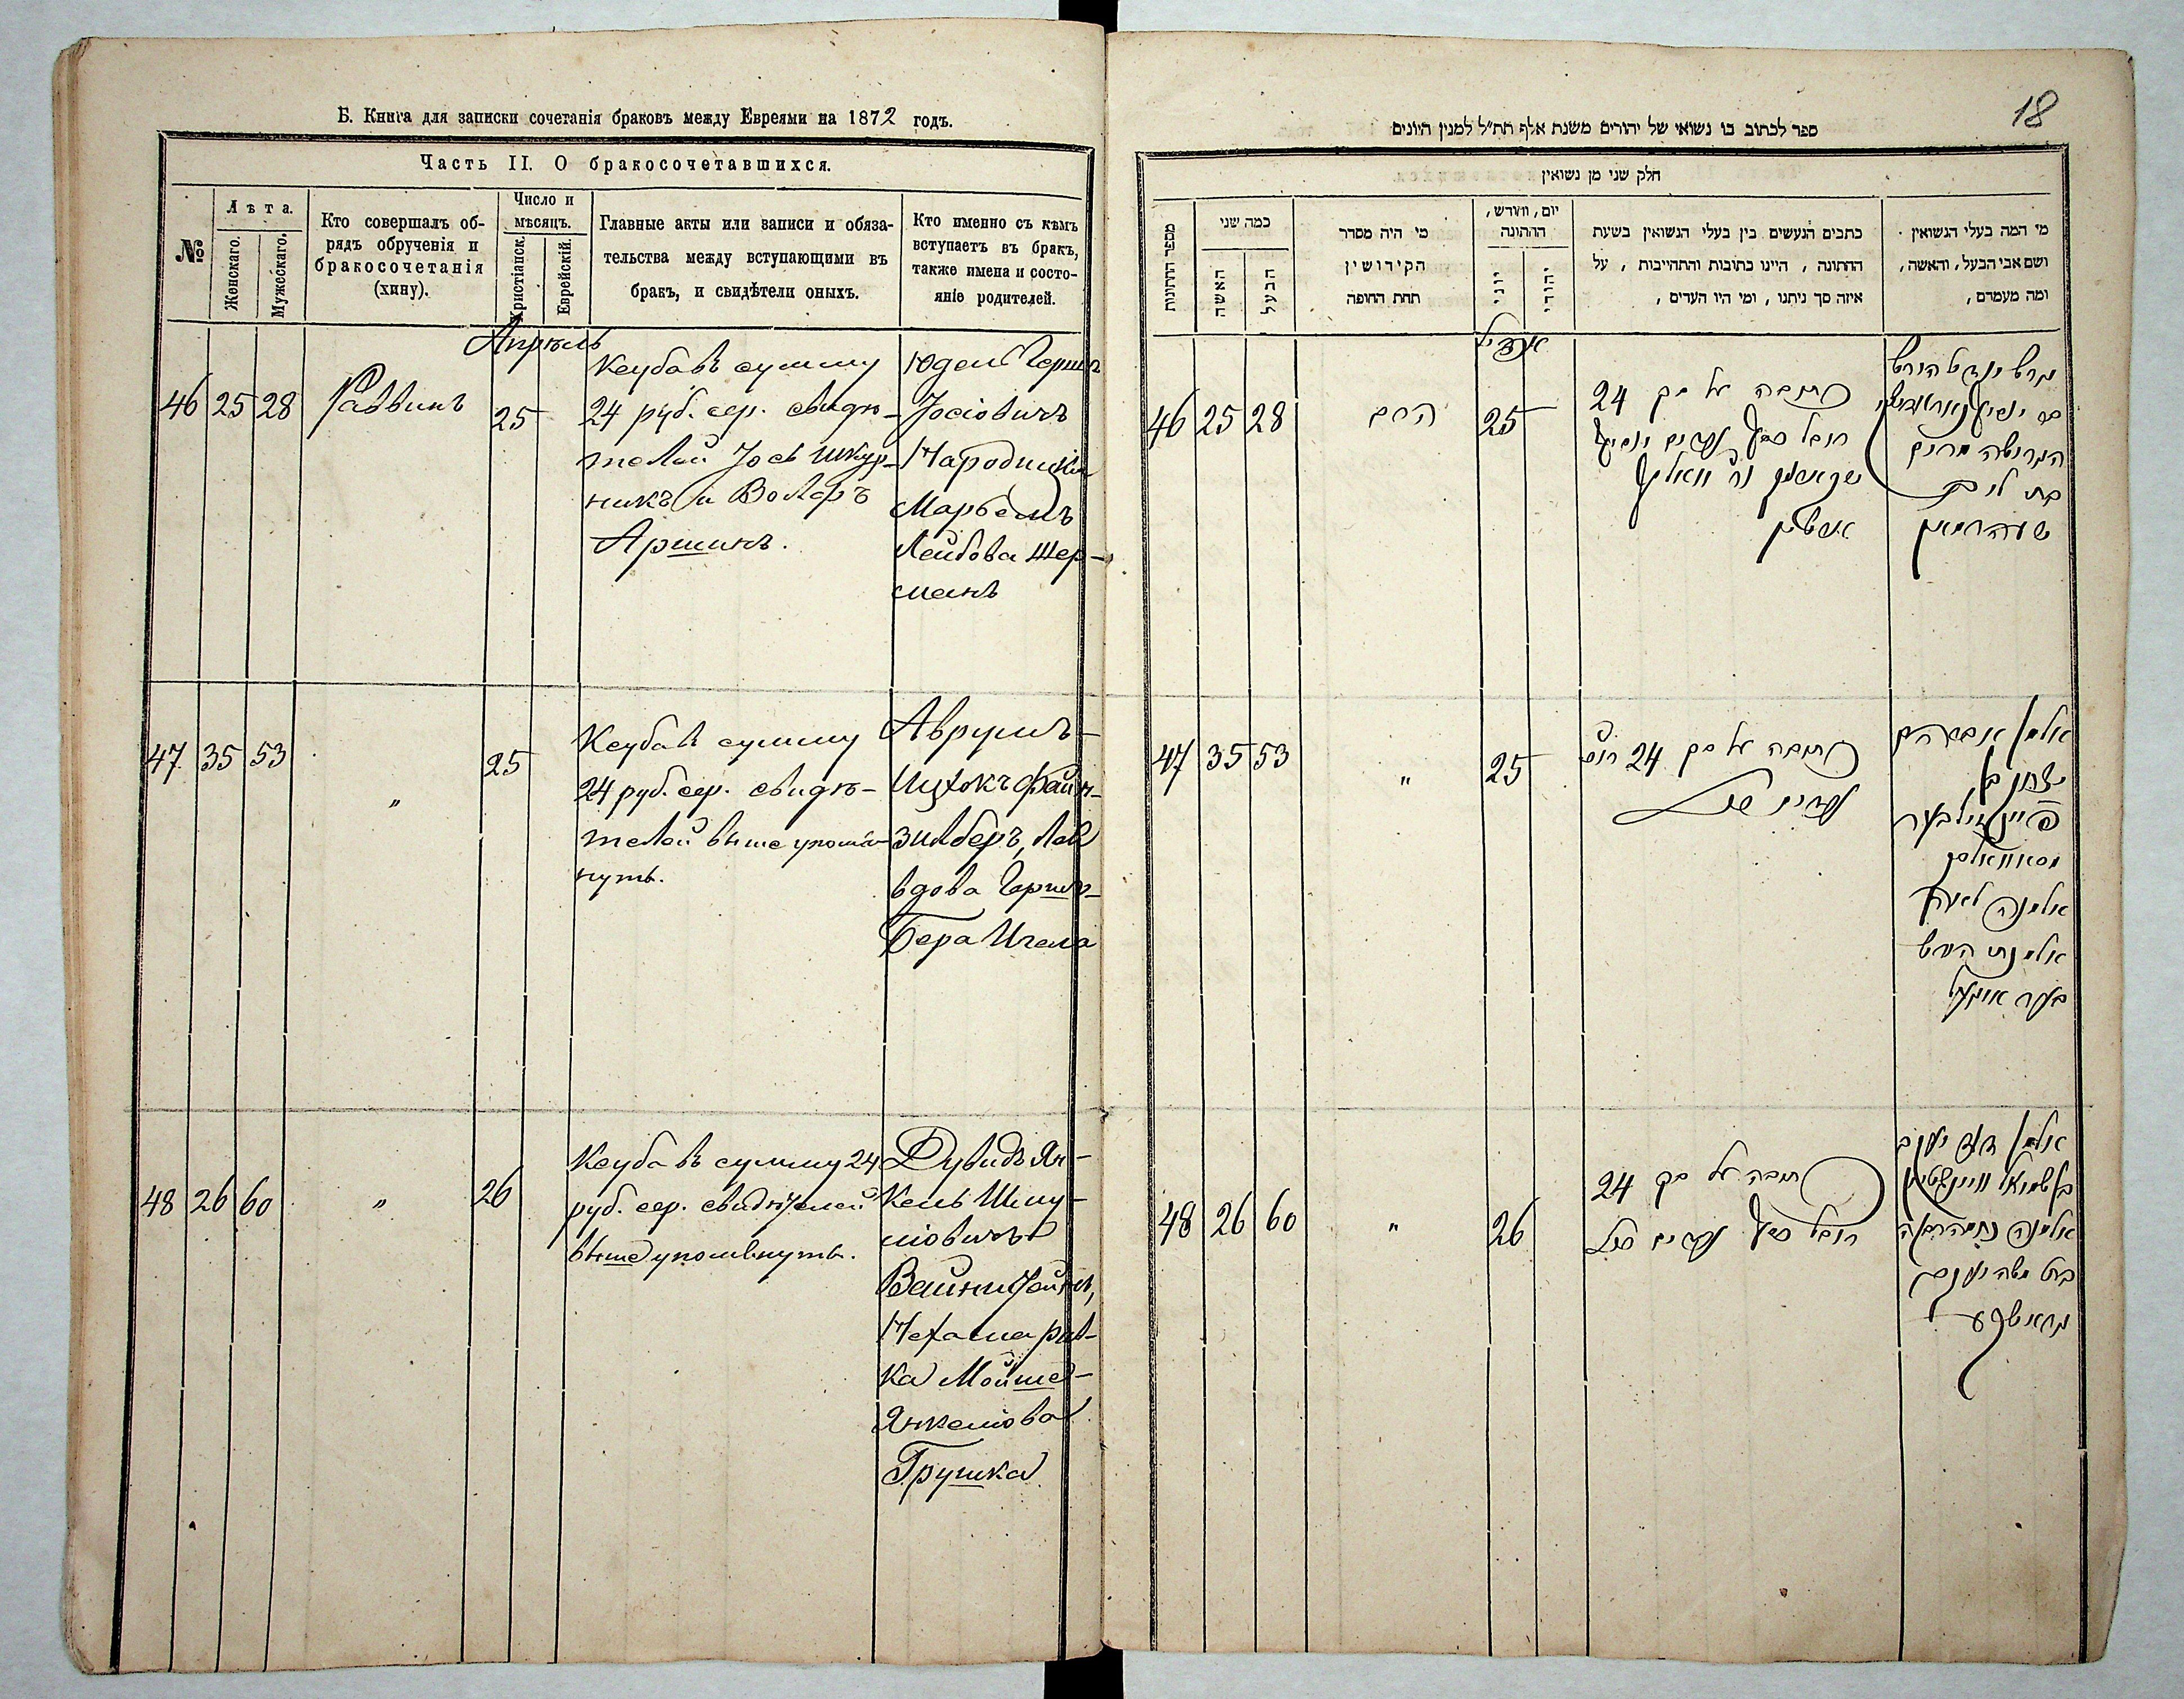 Б. Книга для записки сочетанія браковъ между Евреями на 1872 годъ.
Часть II. О бракосочетавшихся.
№
Лѣта.
Женскаго.
Мужескаго.
Кто совершалъ об-
рядъ обрученія и
бракосочетанія
(хипу).
Число и
мѣсяцъ.
Христіанск.
Еврейскій.
Главные акты или записи и обяза-
тельства между вступающими въ
бракъ, и свидѣтели оныхъ.
Кто именно съ кѣмъ
вступаетъ въ бракъ,
также имена и состо-
яніе родителей.
Апрѣль
46 25 28 Раввинъ 25
Ксуба въ сумму
24 руб. сер. свидѣ-
телей Іось Шкур-
никъ и Волфъ
Аршинъ.
Юдель Гершъ
Іосіовичъ
Народицкій
Марьемъ
Лейбова Шер-
манъ
47 35 53 " 25
Ксуба въ сумму
24 руб. сер. свидѣ-
телей выше упомя-
нутъ.
Аврумъ-
Ицхокъ Файн-
зилберъ, Лея
вдова Гершъ-
Бера Ичела
48 26 60 " 26
Ксуба въ сумму 24
руб. сер. свидѣтелей
выше упомянуты.
Дувидъ Ян-
кель Шму-
ліовичъ
Вайнштейнъ,
Нехама Рив-
ка Мойше-
Янкеліова
Грушка
18
ספר לכתוב בו נשואי של יהודים משנת אלף תת״ל למנין היונים
חלק שני מן נשואין
מספר החתונות
כמה שני
האשה
הבעל
מי היה מסדר
הקידושין
תחת החופה
יום, וחודש,
החתונה
יוני
יהודי
כתבים הנעשים בין בעלי הנשואין בשעת
החתונה, היינו כתובות והתחייבות, על
איזה סך ניתנו, ומי היו העדים,
מי המה בעלי הנשואין
ושם אבי הבעל, והאשה,
ומה מעמדם,
אפריל
46 25 28 הרב 25
כתובה על סך 24
רובל כסף
47 35 53 " 25
כתובה על סך 24
אלמן אברהם
יצחק בן
פיינזילבער
אלמנה לאה
אלמנת הערש
בער
48 26 60 " 26
כתובה על סך 24
רובל כסף
אלמן דוד יעקב
בן שמואל וויינשטיין
אלמנה נחמה רבקה
בת משה יעקב